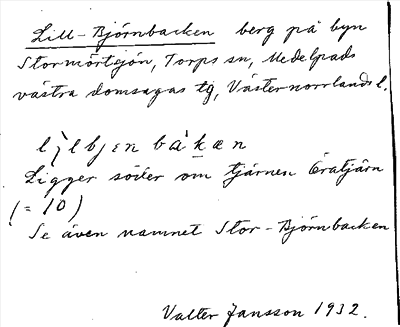 Lill-Björnbacken berg på byn
Stormörtsjön, Torps sn, Medelpads
västra domsagas tg, Västernorrlands l.
Ligger söder om tjärnen Öratjärn
(= 10)
Se även namnet Stor-Björnbacken
Valter Jansson 1932.